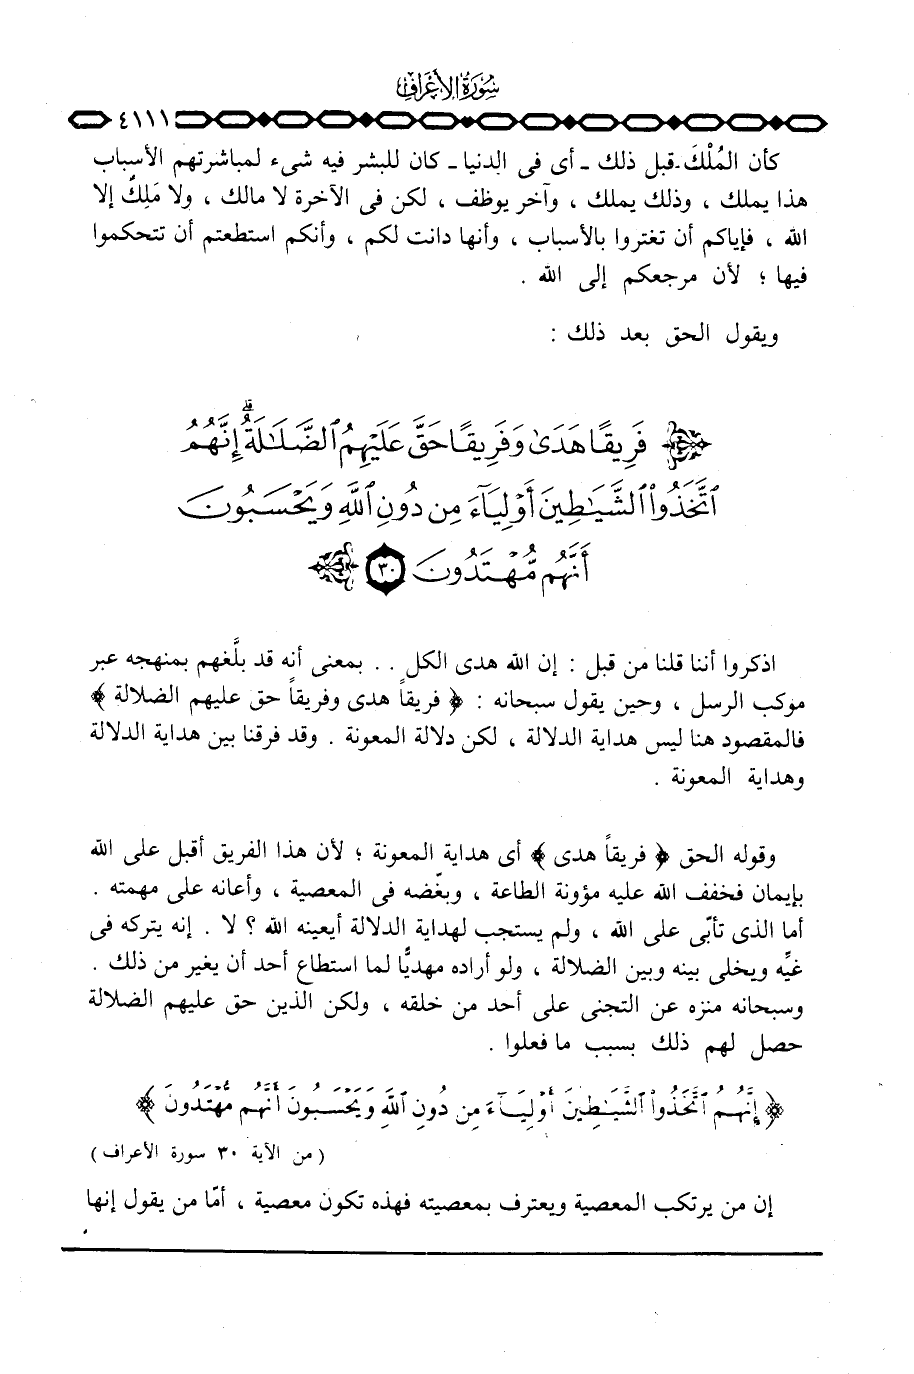 سُورَةُ الأَعْرَافِ
٤١١١
كأن المُلْكَ قبل ذلك ـ أى فى الدنيا ـ كان للبشر فيه شىء لمباشرتهم الأسباب
هذا يملك ، وذلك يملك ، وآخر يوظف ، لكن فى الآخرة لا مالك ، ولا مَلِكَ إلا
الله ، فإياكم أن تغتروا بالأسباب ، وأنها دانت لكم ، وأنكم استطعتم أن تتحكموا
فيها ؛ لأن مرجعكم إلى الله .
ويقول الحق بعد ذلك :
فَرِيقًا هَدَىٰ وَفَرِيقًا حَقَّ عَلَيْهِمُ ٱلضَّلَـٰلَةُ ۗ إِنَّهُمُ
ٱتَّخَذُوا۟ ٱلشَّيَـٰطِينَ أَوْلِيَآءَ مِن دُونِ ٱللَّهِ وَيَحْسَبُونَ
أَنَّهُم مُّهْتَدُونَ ٣٠
اذكروا أننا قلنا من قبل : إن الله هدى الكل . . بمعنى أنه قد بلَّغهم بمنهجه عبر
موكب الرسل ، وحين يقول سبحانه : ﴿ فريقاً هدى وفريقاً حق عليهم الضلالة ﴾
فالمقصود هنا ليس هداية الدلالة ، لكن دلالة المعونة . وقد فرقنا بين هداية الدلالة
وهداية المعونة .
وقوله الحق ﴿ فريقاً هدى ﴾ أى هداية المعونة ؛ لأن هذا الفريق أقبل على الله
بإيمان فخفف الله عليه مؤونة الطاعة ، وبغّضه فى المعصية ، وأعانه على مهمته .
أما الذى تأبّى على الله ، ولم يستجب لهداية الدلالة أيعينه الله ؟ لا . إنه يتركه فى
غيِّه ويخلى بينه وبين الضلالة ، ولو أراده مهديًّا لما استطاع أحد أن يغير من ذلك .
وسبحانه منزه عن التجنى على أحد من خلقه ، ولكن الذين حق عليهم الضلالة
حصل لهم ذلك بسبب ما فعلوا .
﴿ إِنَّهُمُ ٱتَّخَذُوا۟ ٱلشَّيَـٰطِينَ أَوْلِيَآءَ مِن دُونِ ٱللَّهِ وَيَحْسَبُونَ أَنَّهُم مُّهْتَدُونَ ﴾
( من الآية ٣٠ سورة الأعراف )
إن من يرتكب المعصية ويعترف بمعصيته فهذه تكون معصية ، أمّا من يقول إنها